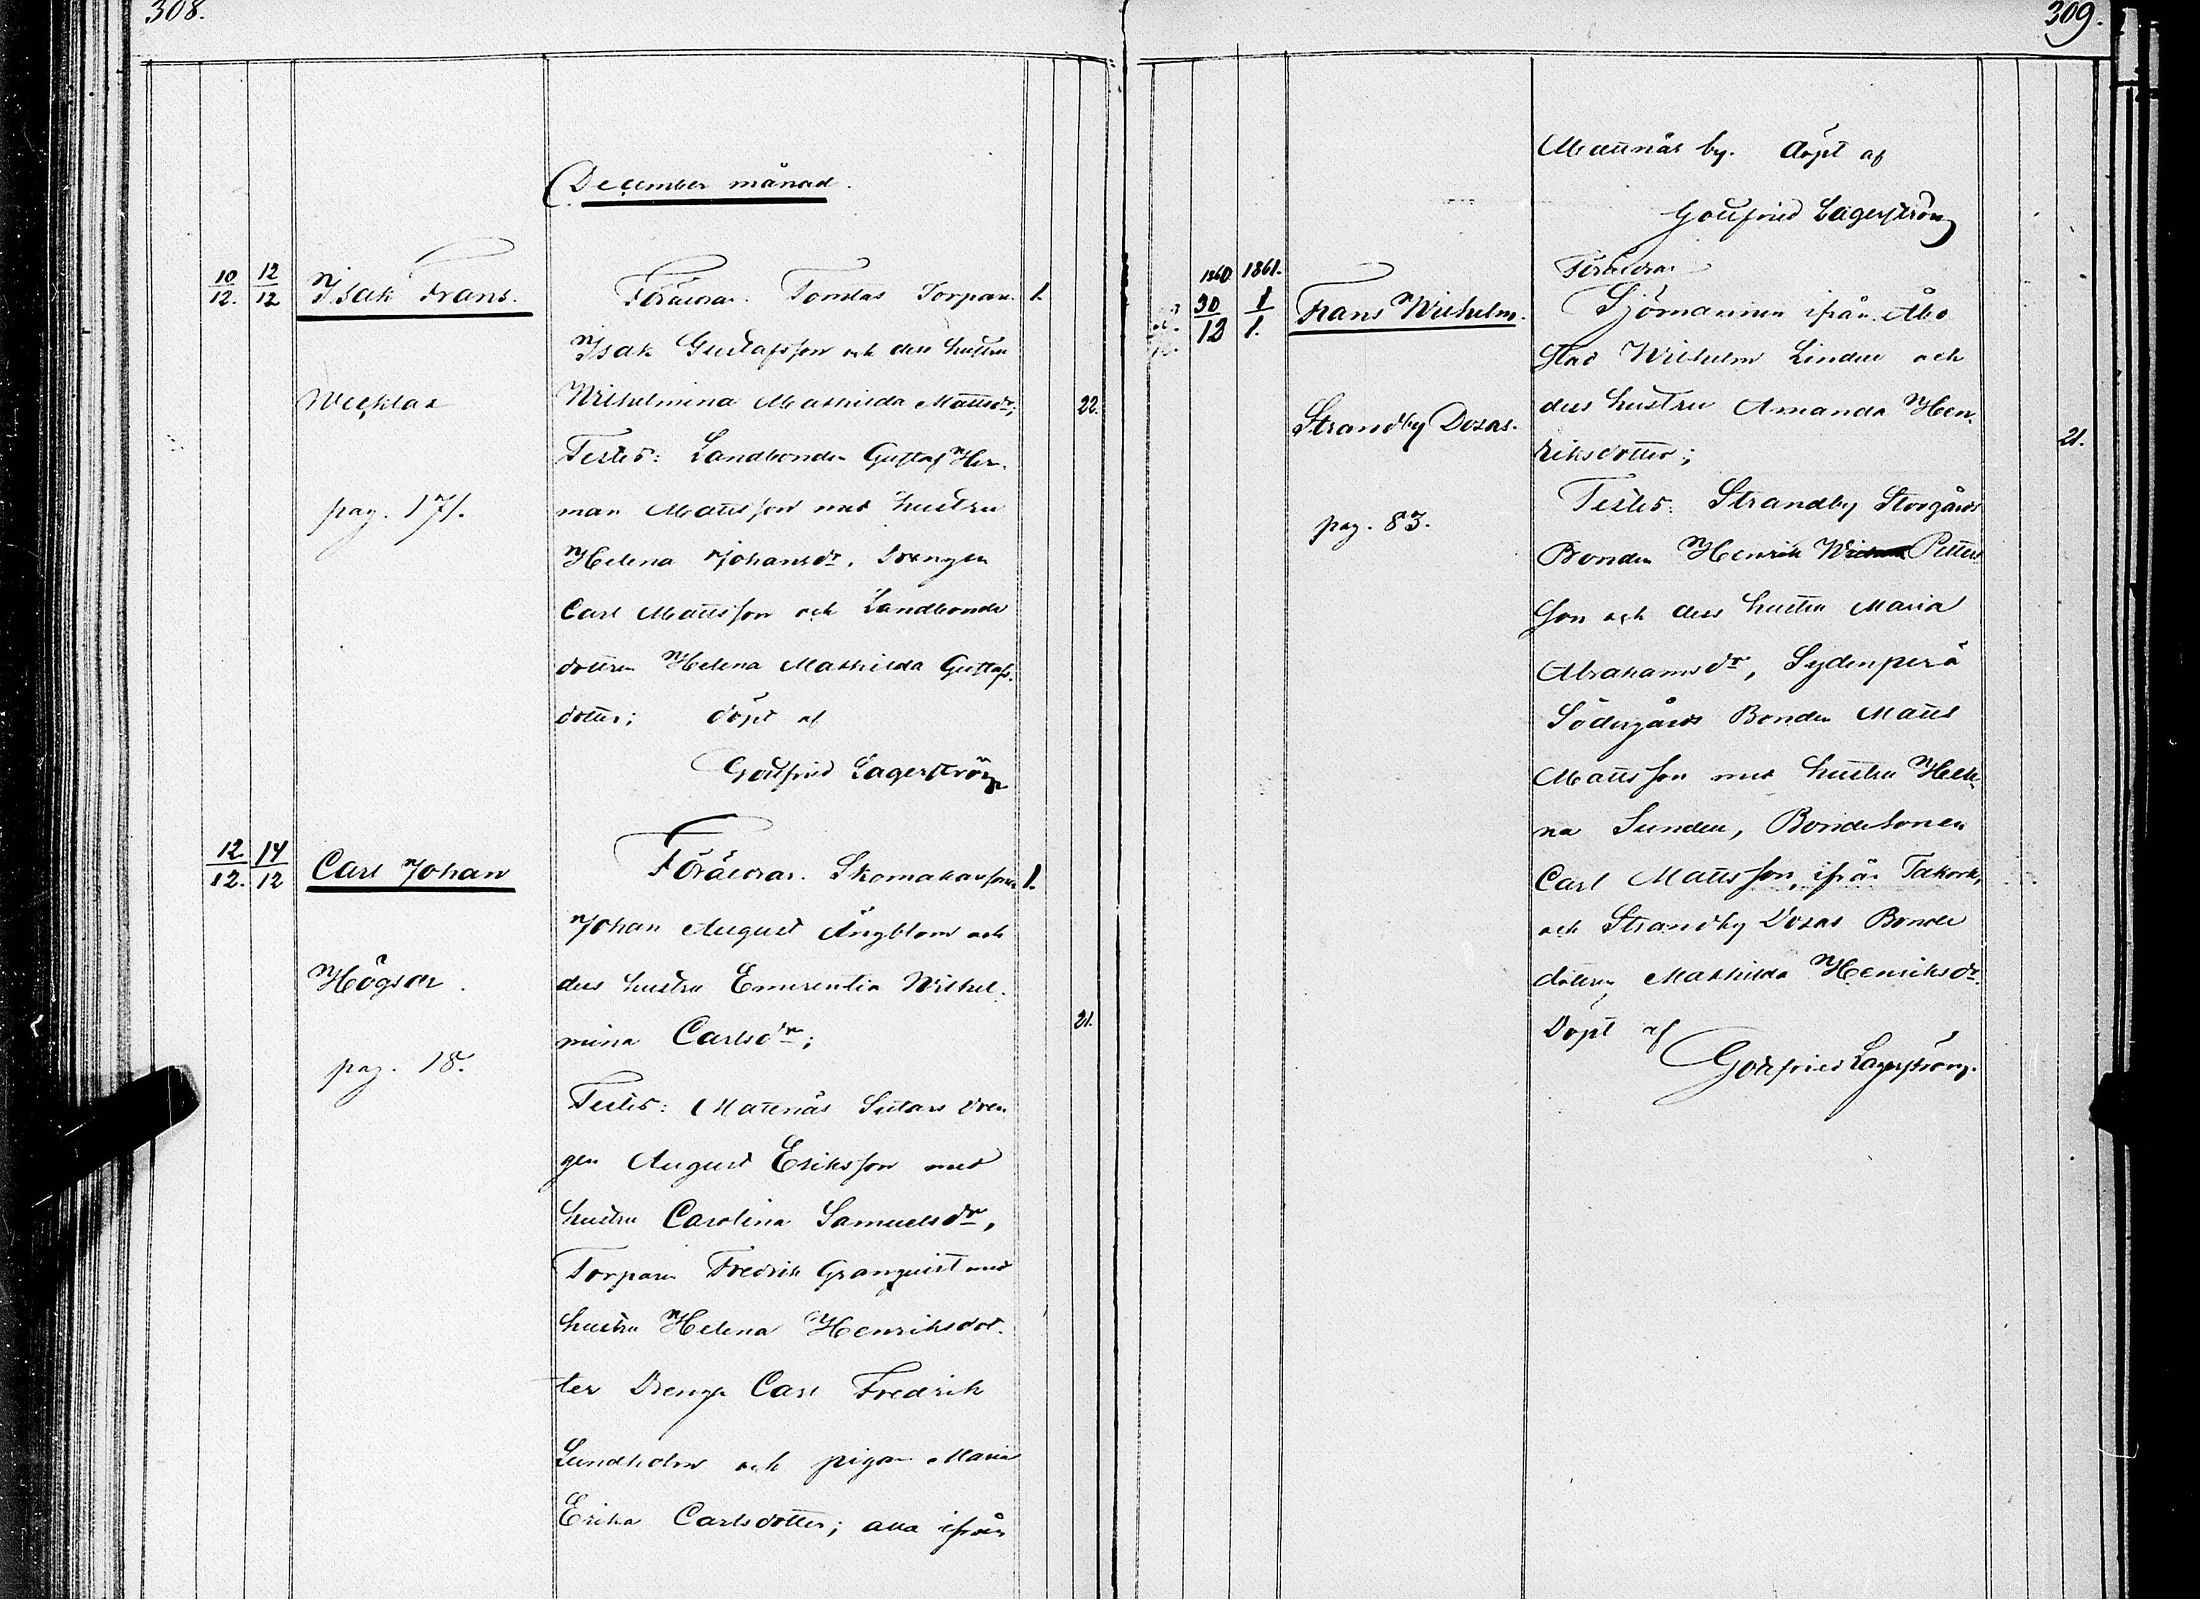 308.
December månad.
10/12. 12/12 Isak Frans. Föräldrar. Tomtas Torpare 1.
Isak Gustafsson och dess hustru
Wilhelmina Mathilda Mattsdr; 22.
Testes: Landbonden Gustaf Her-
man Mattsson med hustru
pag. 171.
Helena Johansdr. Drengen
Carl Mattsson och Landbonde
dottren Helena Mathilda Gustafs-
dotter; döpt af
Gottfried Lagerström
12/12. 14/12 Carl Johan Föräldrar. Skomakarsonen 1.
Johan August Ängblom och
Högsar. dess hustru Emerentia Wilhel-
mina Carlsdr; 21.
pag. 18.
Testes: Mattnäs Sutars dren
gen August Eriksson med
hustru Carolina Samuelsdr,
Torparen Fredrik Granquist med
hustru Helena Henriksdot-
ter Dreng Carl Fredrik
Lundholm och pigan Maria
Erika Carlsdotter; alla ifrån
309.
Mattnäs by. döpt af
Gottfried Lagerström
Föräldrar
1860 30/12 1861. 1/1. Frans Wilhelm. Sjömannen ifrån Åbo
stad Wilhelm Linder och
Strandby Dosas. dess hustru Amanda Hen-
riksdotter; 21.
Testes: Strandby Storgårds
pag. 83.
Bonden Henrik Petters
son och dess hustru Maria
Abrahamsdr, Sydenperä
Södergårds Bonden Matts
Mattsson med hustru Hele
na Sunden, Bondesonen
Carl Mattsson, ifrån
och Strandby Dosas Bonde
dottren Mathilda Henriksdr.
Döpt af
Gottfried Lagerström.